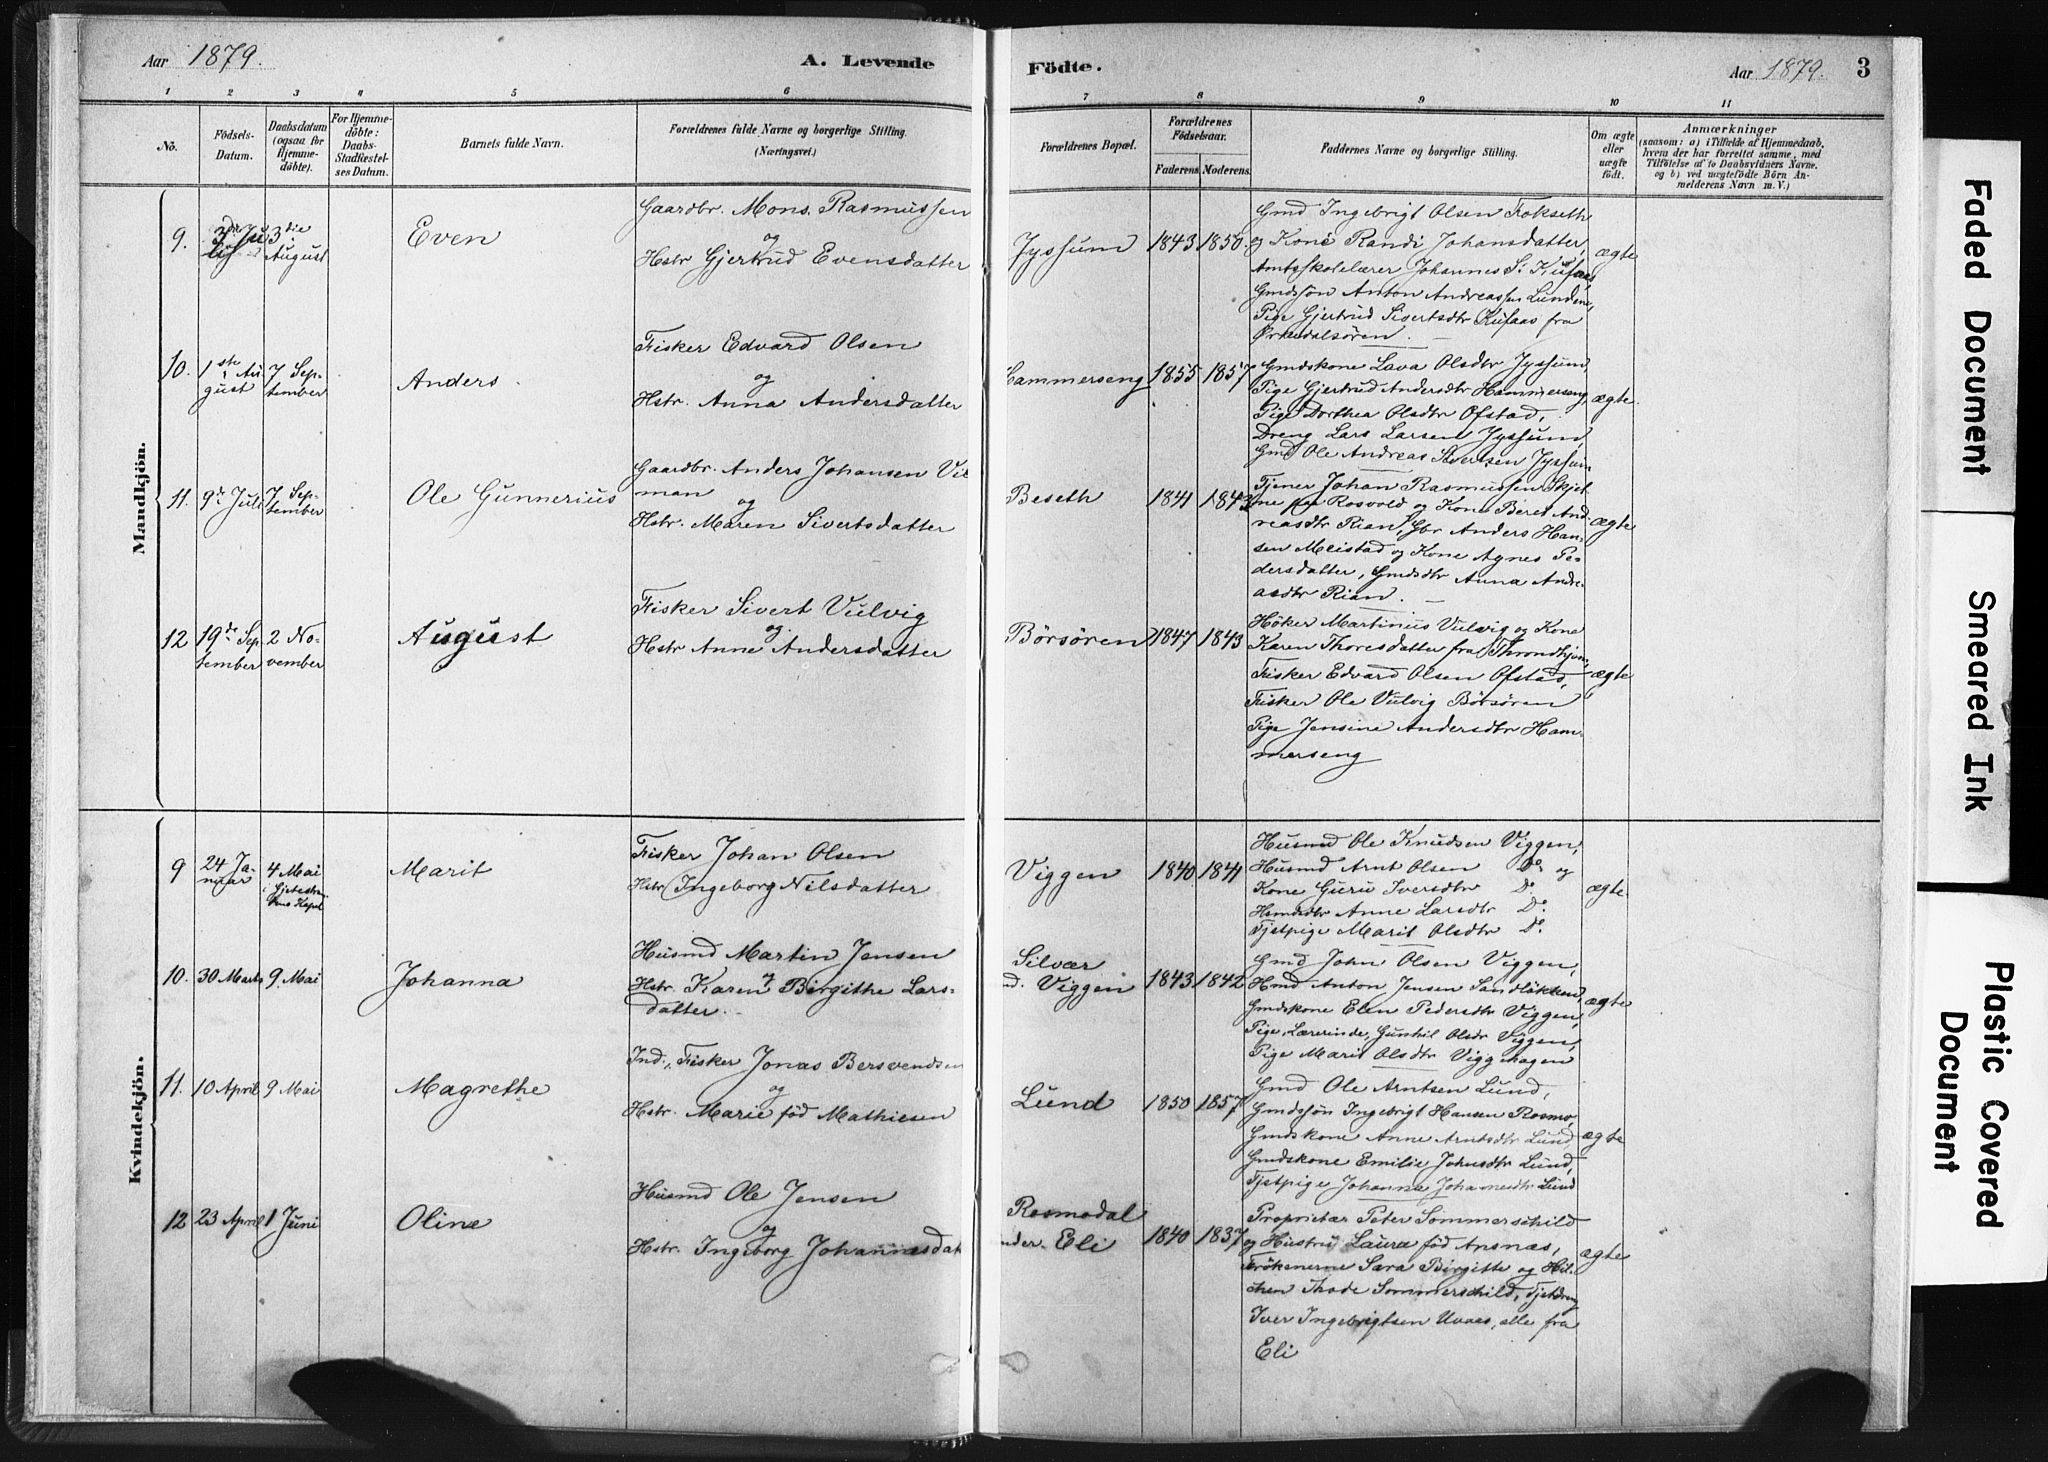 Aar 1879.
A. Levende
Födte.
Aar 1879.
3
1 2 3 4 5 6 7 8 9 10 11
No.
Födsels-Datum.
Daabsdatum (ogsaa for Hjemme-döbte).
For Hjemme-döbte: Daabs-Stadfæstel-ses Datum.
Barnets fulde Navn.
Forældrenes fulde Navne og borgerlige Stilling.
(Næringsvei.)
Forældrenes Bopæl.
Forældrenes Födselsaar.
Faderens. Moderens.
Faddernes Navne og borgerlige Stilling.
Om ægte eller uægte födt.
Anmærkninger
(saasom: a) i Tilfælde af Hjemmedaab,
hvem der har forrettet samme, med
Tilföielse af to Daabsvidners Navne.
og b) ved uægtefödte Börn An-
melderens Navn m. V.)
Mandkjön.
9.
3die August
Even
Gaardbr. Mons. Rasmussen
og
Hstr Gjertrud Evensdatter
Jyssum
1843 1850.
Gmd Ingebrigt Olsen Fokseth
og Kone Randi Johansdatter,
Amtsskolelærer Johannes S. Kusaas,
Gmdssön Anton Andreassen Lundene,
Pige Gjertrud Sivertsdtr Kusaas fra
Ørkedalsören.
ægte
10.
1ste August
7 September
Anders.
Fisker Edvard Olsen
og
Hstr. Anna Andersdatter
Hammerseng
1855 1857
Gmdskone Lava Olsdtr Jyssum,
Pige Gjertrud Andersdtr Hammerseng,
Pige Dorthea Olsdtr Ofstad,
Dreng Lars Larsen Jyssum,
Gmd Ole Andreas Sivertsen Jyssum
ægte.
11.
9de Juli
7 September
Ole Gunnerius
Gaardbr. Anders Johansen Vil
man
og
Hstr. Maren Sivertsdatter
Beseth
1841 1843
Tjener Johan Rasmussen Skjet-
ne fra Rosvold og Kone Beret And-
reasdtr Rian, Gbr Anders Han-
sen Meistad og Kone Agnes Pe-
dersdatter, Gmdsdtr Anna Andre-
asdtr Rian.
ægte
12
19de September
2 November
August
Fisker Sivert Vulvig
og
Hstr Anne Andersdatter
Börsören
1847 1843
Höker Martinius Vulvig og Kone
Karen Thoresdatter fra Throndhjem,
Fisker Edvard Olsen Ofstad,
Fisker Ole Vulvig Börsören
Pige Jensine Andersdtr Ham-
merseng
ægte
Kvindekjön.
9
24 Januar
4 Mai
Marit
Fisker Johan Olsen
Hstr Ingeborg Nilsdatter
Viggen
1840 1841
Husmd Ole Knudsen Viggen,
Husmd Arnt Olsen Do og
Kone Guru Iversdtr Do
Hsmdsdtr Anne Larsdtr Do.
Tjstpige Marit Olsdtr Do.
ægte.
10.
30 Marts
9 Mai
Johanna
Husmd Martin Jensen
og
Hstr. Karen Birgithe Lars-
datter.
Silvær
nd. Viggen
1843 1842
Gmd John Olsen Viggen,
Hmd Anton Jensen Sandlökken,
Gmdskone Elen Pedersdtr Viggen,
Pige, Lærerinde, Gunhil Olsdr Viggen,
Pige Marit Olsdtr Viggehagen
ægte
11.
10 April
9 Mai
Magrethe
Ind., Fisker Jonas Bersvendsen
og
Hstr. Marie föd Mathiesen
Lund
1850 1857
Gmd Ole Arntsen Lund,
Gmdssön Ingebrigt Hansen Rosmo,
Gmdskone Anne Arntsdtr Lund,
Gmdskone Emilie Johnsdtr Lund,
Tjstpige Johanna Johannesdtr Lund
ægte
12
23 April
1 Juni
Oline
Husmd Ole Jensen
og
Hstr. Ingeborg Johannesdat
Rosmodal
nder. Eli
1840 1837
Proprietær Peter Sommerschild
og Hustru Laura föd Apsnæs,
Frökenerne Sara Birgitte og Hil-
chen Thode Sommerschild, Tjstdreng
Iver Ingebrigtsen Uvaas, alle fra
Eli
ægte
Faded Document
Smeared Ink
Plastic Covered
Document